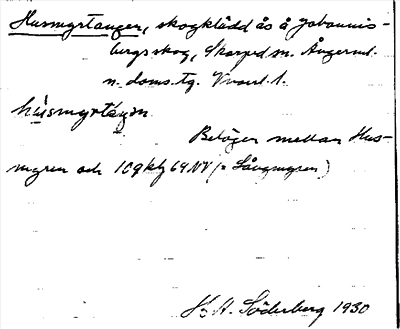 Husmyrtangen, skogklädd ås å Johannis-
bergs skog, Skorped sn. Ångerml.
n. doms. tg. Vivast. 1.
húsmyrtàŋən
Belägen mellan Hus-
myren och 109 kbg 64 NV (= Långmyren)
H. A. Söderberg 1930